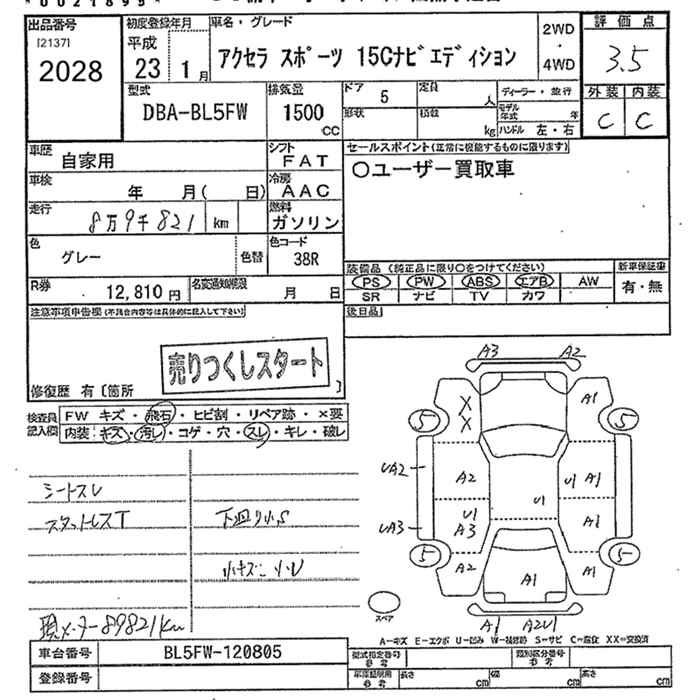 出品番号
[2137]
2028
初度登録年月
平成
23 1月
車名・グレード
アクセラ スポーツ 15Cナビエディション
2WD
・
4WD
評価点
3.5
外装 内装
C C
型式
DBA-BL5FW
排気量
1500
CC
ドア 5
形状
定員 人
積数 kg
ディーラー・並行
モデル年式 年
ハンドル 左・右
車歴 自家用
シフト
FAT
セールスポイント(正常に機能するものに限ります)
〇ユーザー買取車
車検 年 月( 日)
冷房
AAC
走行 8万9千821 km
燃料
ガソリン
色 グレー
色替
色コード
38R
装備品 (純正品に限り〇をつけてください)
新車保証書
PS PW ABS エアB AW
有・無
SR ナビ TV カワ
R券 12,810円
名変通知期限 月 日
注意事項申告欄(不具合内容等は具体的に記入して下さい)
後日品
売りつくしスタート
修復歴 有〔箇所 〕
検査員記入欄
FW キズ・飛石・ヒビ割・リペア跡・×要
内装:キズ・汚レ・コゲ・穴・スレ・キレ・破レ
シートスレ
スタットレスT
下廻り小S
小キズ 小U
現メーター89821km
A3 A2
5 XX A1 5
UA2 A2 U1 A1
U1 U1
UA3 A3 A1
5 A2 A1 A1 5
スペア
A1 A2U1
A=キズ E=エクボ U=凹み W=補修跡 S=サビ C=腐食 XX=交換済
車台番号 BL5FW-120805
型式指定番号
参考
類別区分番号
参考
登録番号
車庫証明用
参考
長さ cm 幅 cm 高さ cm